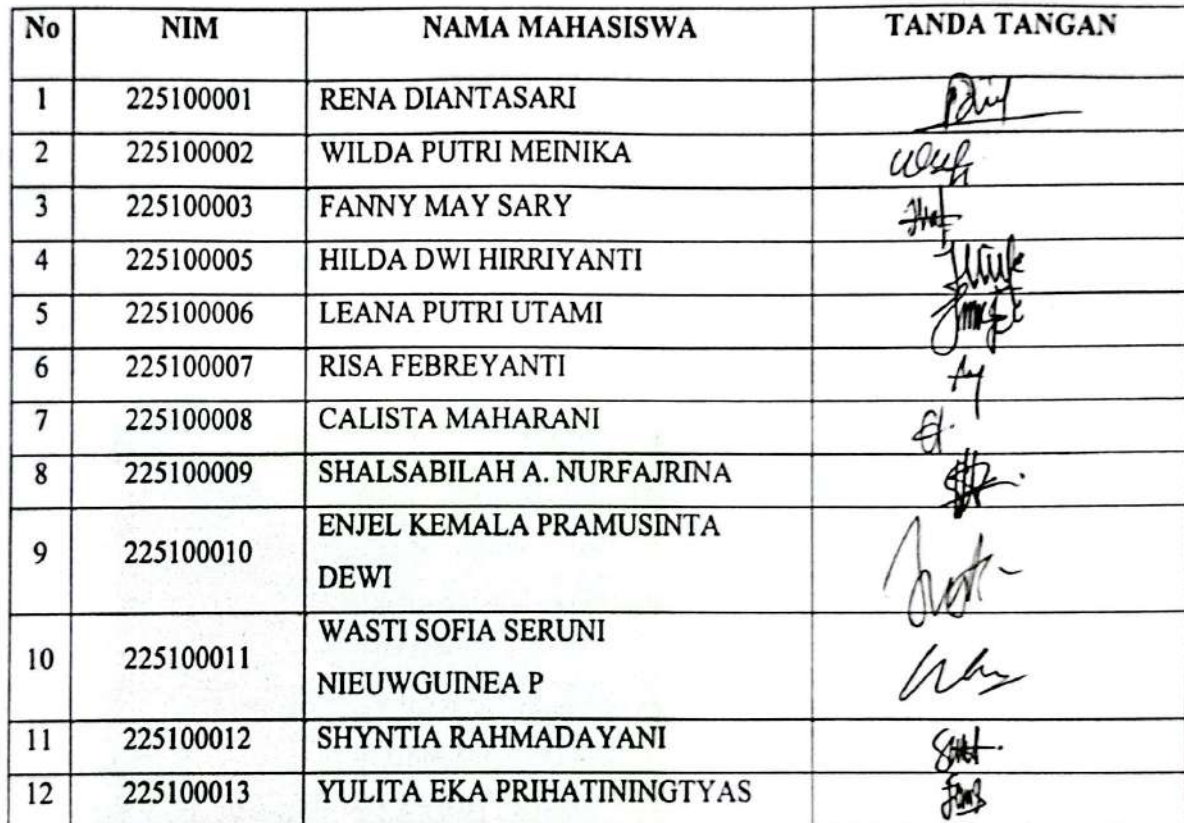 No NIM NAMA MAHASISWA TANDA TANGAN
1 225100001 RENA DIANTASARI
2 225100002 WILDA PUTRI MEINIKA
3 225100003 FANNY MAY SARY
4 225100005 HILDA DWI HIRRIYANTI
5 225100006 LEANA PUTRI UTAMI
6 225100007 RISA FEBREYANTI
7 225100008 CALISTA MAHARANI
8 225100009 SHALSABILAH A. NURFAJRINA
9 225100010 ENJEL KEMALA PRAMUSINTA
DEWI
10 225100011 WASTI SOFIA SERUNI
NIEUWGUINEA P
11 225100012 SHYNTIA RAHMADAYANI
12 225100013 YULITA EKA PRIHATININGTYAS